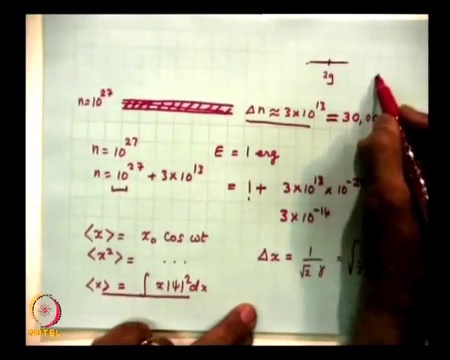 2g
n=10²⁷ Δn ≈ 3×10¹³ = 30,00
n = 10²⁷ E = 1 erg
n = 10²⁷ + 3×10¹³ = 1 + 3×10¹³ × 10⁻²
3×10⁻¹⁴
⟨x⟩ = x₀ cos ωt
⟨x²⟩ = ...
⟨x⟩ = ∫ x|ψ|² dx
Δx = 1/√2 γ = √
NPTEL